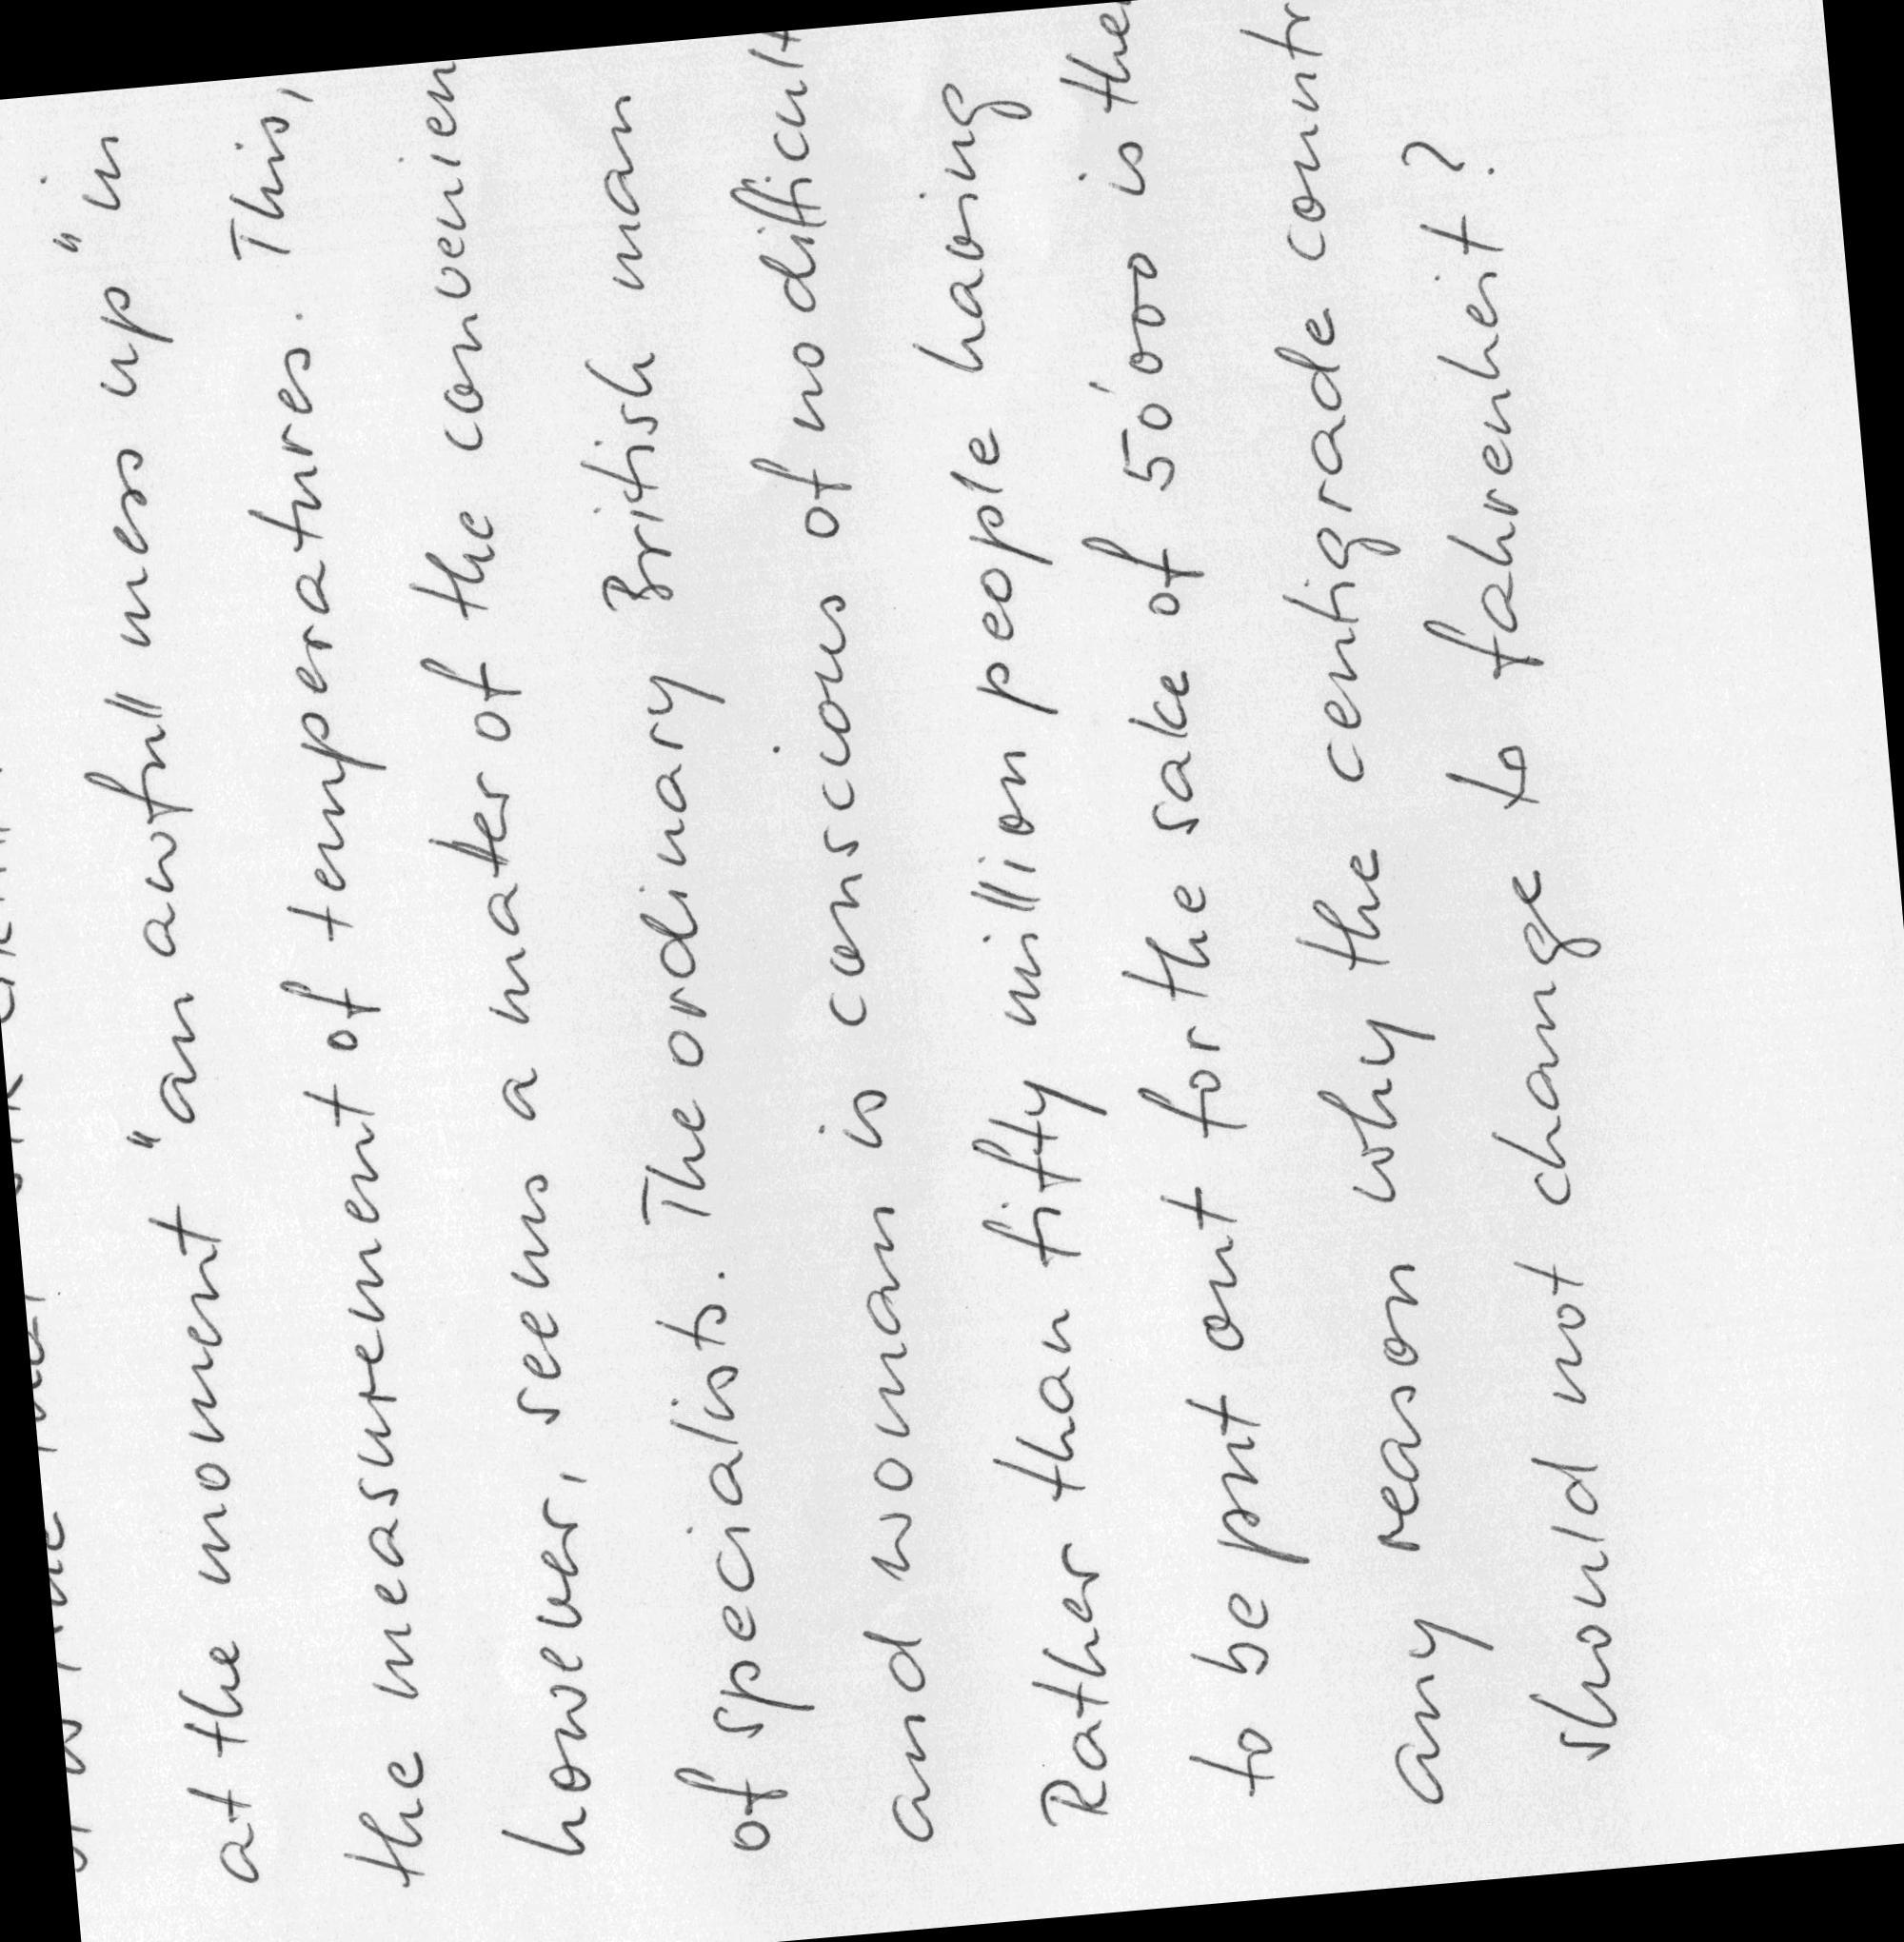 at the moment "an awfull mess up" in
the measurement of temperatures. This,
however, seems a matter of the convenien
of specialists. The ordinary British man
and woman is conscious of no difficult
Rather than fifty million people having
to be put out for the sake of 50'000 is the
any reason why the centigrade countr
should not change to fahrenheit?